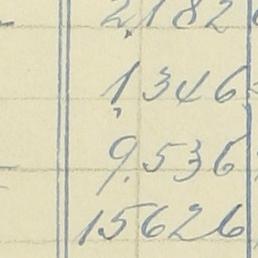 2,182
1,346
9.536
15626